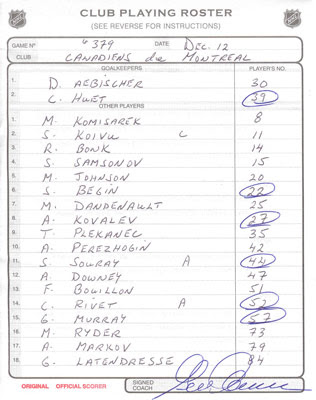 CLUB PLAYING ROSTER
(SEE REVERSE FOR INSTRUCTIONS)
GAME Nº #379 DATE DEC. 12
CLUB CANADIENS de MONTREAL
GOALKEEPERS PLAYER'S NO.
1. D. AEBISCHER 30
2. C. HUET 39
OTHER PLAYERS
1. M. KOMISAREK 8
2. S. KOIVU C 11
3. R. BONK 14
4. S. SAMSONOV 15
5. M. JOHNSON 20
6. S. BEGIN 22
7. M. DANDENAULT 25
8. A. KOVALEV 27
9. T. PLEKANEC 35
10. A. PEREZHOGIN 42
11. S. SOURAY A 44
12. A. DOWNEY 47
13. F. BOUILLON 51
14. C. RIVET A 52
15. G. MURRAY 57
16. M. RYDER 73
17. A. MARKOV 79
18. G. LATENDRESSE 84
ORIGINAL OFFICIAL SCORER SIGNED COACH